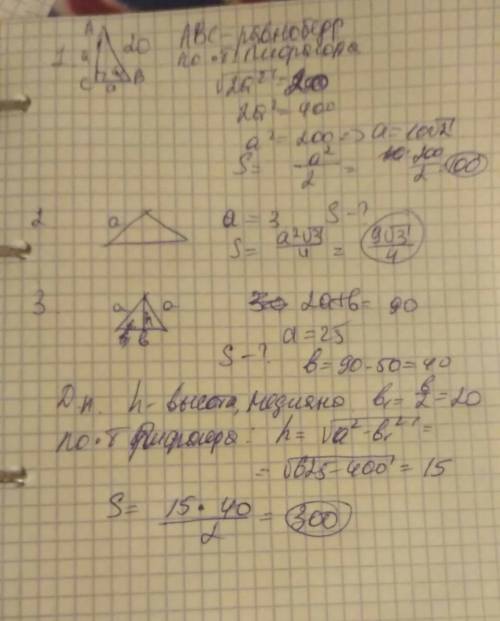 1 A 20 ABC - равнобедр
a C a B по т Пифагора
√2a² = 20
2a² = 400
a² = 200 => a = 10√2
S = a²/2 = 200/2 = 100
2 a a = 3 S - ?
S = a²√3/4 = 9√3/4
3 a a h b 2a+b = 90
a = 25
S - ? b = 90 - 50 = 40
Д.п. h - высота, медиана b₁ = b/2 = 20
по т Пифагора: h = √a² - b₁² =
= √625 - 400 = 15
S = 15 · 40/2 = 300